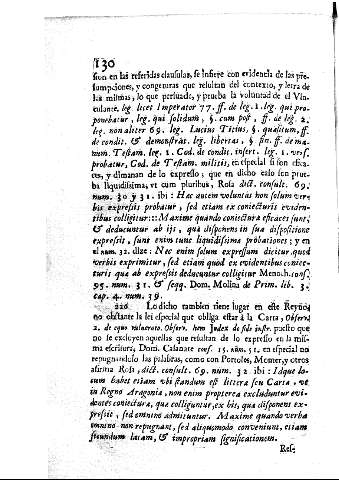 130
sion en las referidas clausulas, se infiere con evidencia de las pre-
sumpciones, y congeturas que resultan del contexto, y letra de
las mismas, lo que persuade, y prueba la voluntad de el Vin-
culante, leg. licet Imperator 77. ff. de leg. 1. leg. qui pro-
ponebatur, leg. qui solidum, §. cum post, ff. de leg. 2.
leg. non aliter 69. leg. Lucius Ticius, §. quæsitum, ff.
de condit. & demonstrat. leg. libertas, §. fin. ff. de ma-
num. Testam. leg. 1. Cod. de condit. insert. leg. 1. vers.
probatur, Cod. de Testam. militis, en especial si son efica-
ces, y dimanan de lo expresso; que en dicho caso son prue-
ba liquidissima, vt cum pluribus, Rosa dict. consult. 69.
num. 30. y 31. ibi: Hac autem voluntas non solum ver-
bis expresis probatur, sed etiam ex coniecturis eviden-
tibus colligitur::: Maxime quando coniectura eficaces sunt,
& deducuntur ab ijs, qua disponens in sua dispositione
expresit, sunt enim tunc liquidissima probationes; y en
el num. 32. dize: Nec enim solum expresum dicitur quod
verbis exprimitur, sed etiam quod ex evidentibus coniec-
turis qua ab expresis deducuntur colligitur Menoch. cons.
95. num. 31. & seqq. Dom. Molina de Prim. lib. 3.
cap. 4. num. 39.
226 Lo dicho tambien tiene lugar en este Reyno,
no obstante la ley especial que obliga estár á la Carta, Observ.
2. de equo vulnerato. Observ. item Judex de fide instr. puesto que
no se excluyen aquellas que resultan de lo expresso en la mis-
ma escritura, Dom. Casanate cons. 15. num. 51. en especial no
repugnandoles las palabras, como con Portoles, Monter, y otros
afirma Rosa, dict. consult. 69. num. 32 ibi: Idque lo-
cum habet etiam vbi standum est littera seu Carta, vt
in Regno Aragonia, non enim propterea excluduntur evi-
dentes coniectura, qua colliguntur, ex his, qua disponens ex-
presit, sed omnino admituntur. Maxime quando verba
omnino non repugnant, sed aliquomodo conveniunt, etiam
secundum latam, & impropriam significationem.
Res-